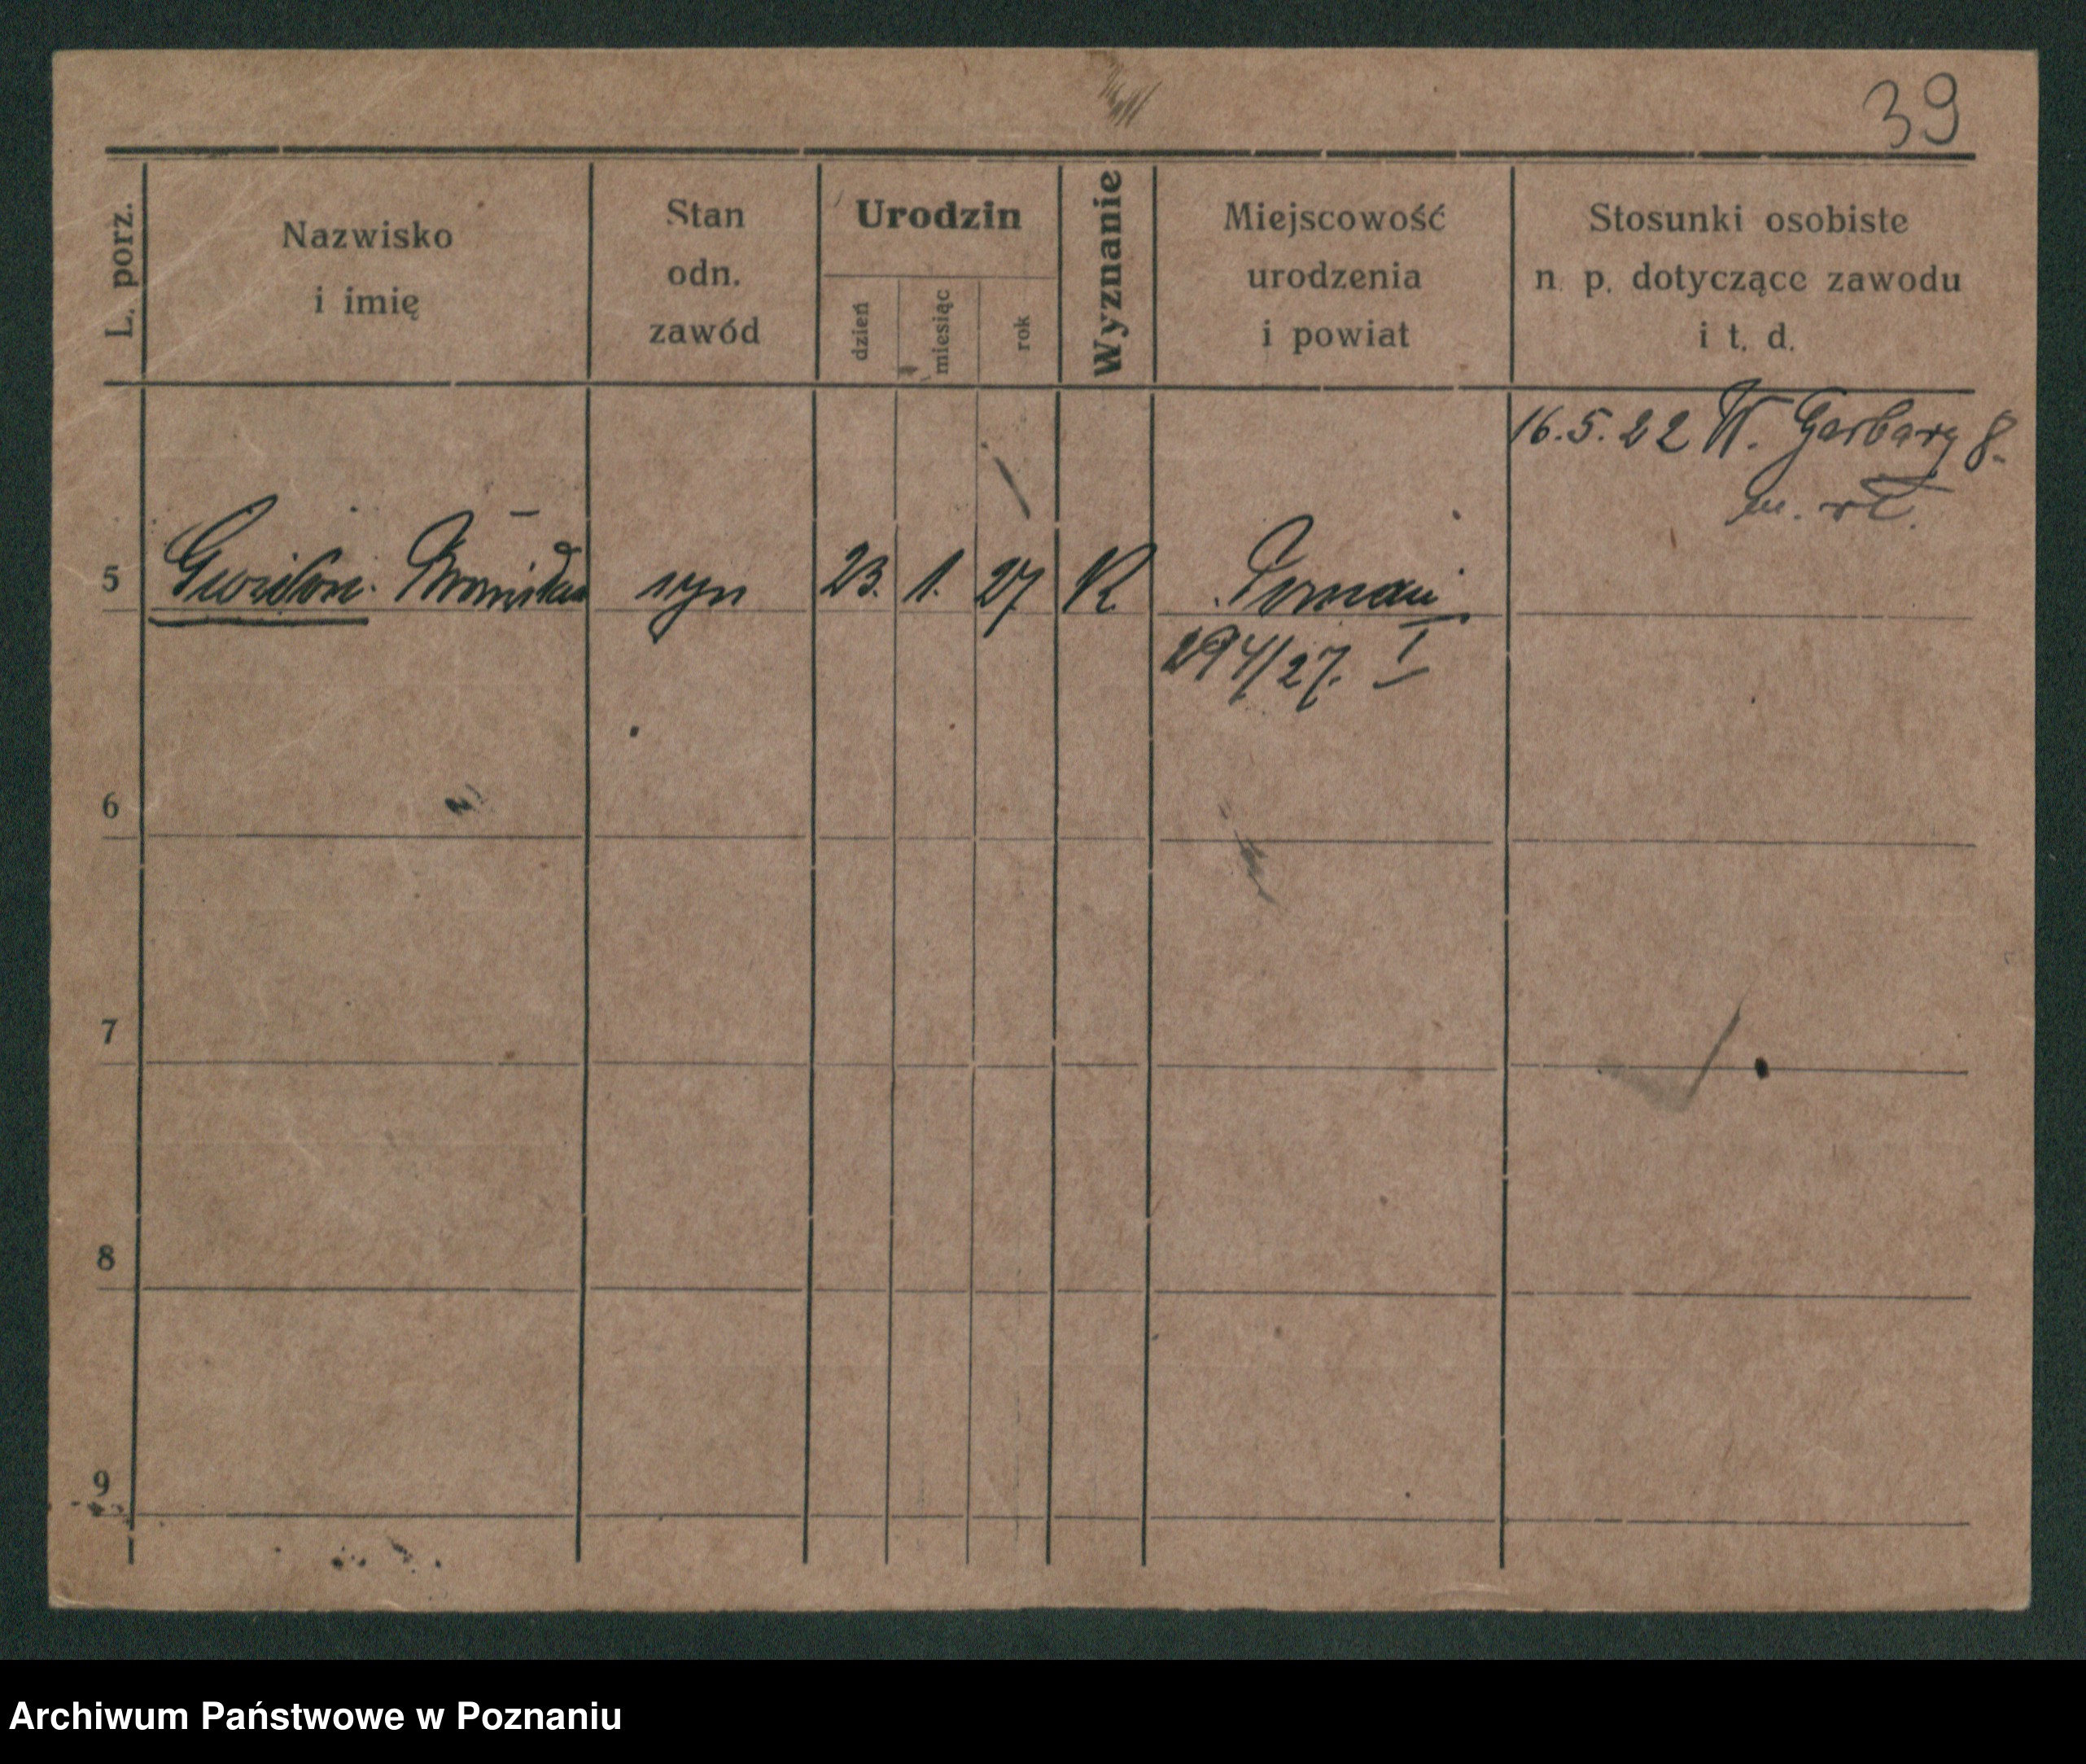 39
L. porz.
Nazwisko
i imię
Stan
odn.
zawód
Urodzin
dzień
miesiąc
rok
Wyznanie
Miejscowość
urodzenia
i powiat
Stosunki osobiste
n. p. dotyczące zawodu
i t. d.
16.5.22 W. Garbary 8.
5 syn 23. 1. 27 K Poznań
294/27. I
6
7
8
9
Archiwum Państwowe w Poznaniu